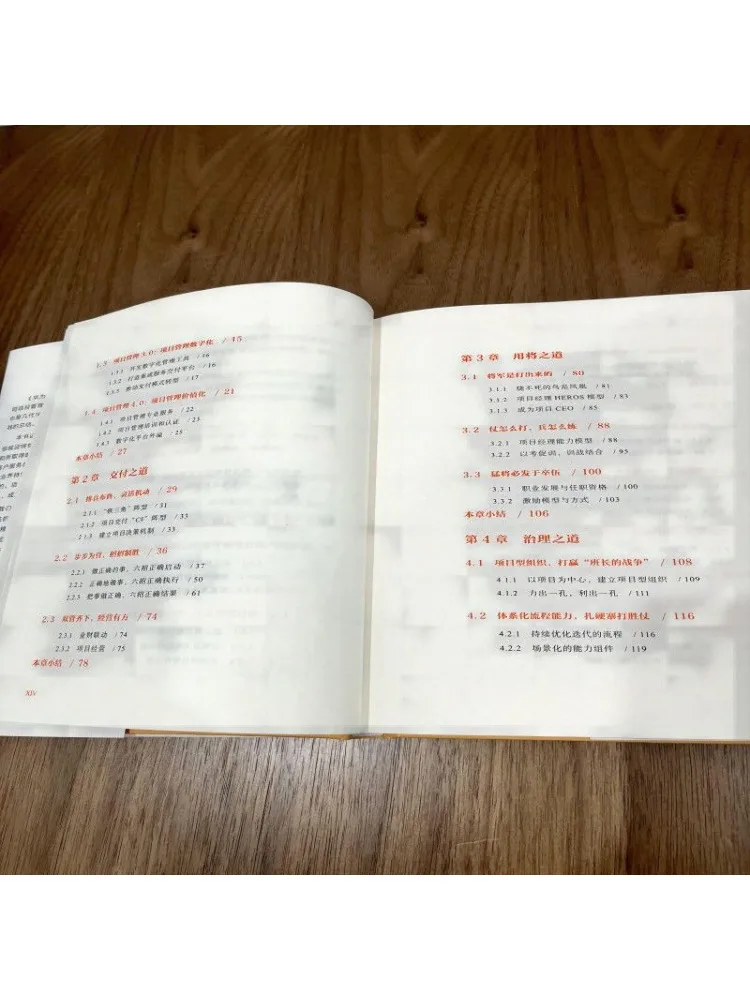 1.3 项目管理3.0：项目管理数字化 / 15
1.3.1 开发数字化管理工具 / 16
1.3.2 打造集成服务交付平台 / 16
1.3.3 推动交付模式转型 / 17
1.4 项目管理4.0：项目管理价值化 / 21
1.4.1 项目管理专业服务 / 22
1.4.2 项目管理培训和认证 / 23
1.4.3 数字化平台外溢 / 25
本章小结 / 27
第 2 章 交付之道
2.1 排兵布阵，灵活机动 / 29
2.1.1 “铁三角”阵型 / 31
2.1.2 项目交付“C8”阵型 / 33
2.1.3 建立项目决策机制 / 35
2.2 步步为营，招招制胜 / 36
2.2.1 做正确的事，六招正确启动 / 37
2.2.2 正确地做事，六招正确执行 / 50
2.2.3 把事做正确，六招正确结果 / 61
2.3 双管齐下，经营有方 / 74
2.3.1 业财联动 / 74
2.3.2 项目经营 / 75
本章小结 / 78
XIV
第 3 章 用将之道
3.1 将军是打出来的 / 80
3.1.1 烧不死的鸟是凤凰 / 81
3.1.2 项目经理 HEROS 模型 / 83
3.1.3 成为项目 CEO / 85
3.2 仗怎么打，兵怎么练 / 88
3.2.1 项目经理能力模型 / 88
3.2.2 以考促训，训战结合 / 95
3.3 猛将必发于卒伍 / 100
3.3.1 职业发展与任职资格 / 100
3.3.2 激励模型与方式 / 103
本章小结 / 106
第 4 章 治理之道
4.1 项目型组织，打赢“班长的战争” / 108
4.1.1 以项目为中心，建立项目型组织 / 109
4.1.2 力出一孔，利出一孔 / 111
4.2 体系化流程能力，扎硬寨打胜仗 / 116
4.2.1 持续优化迭代的流程 / 116
4.2.2 场景化的能力组件 / 119